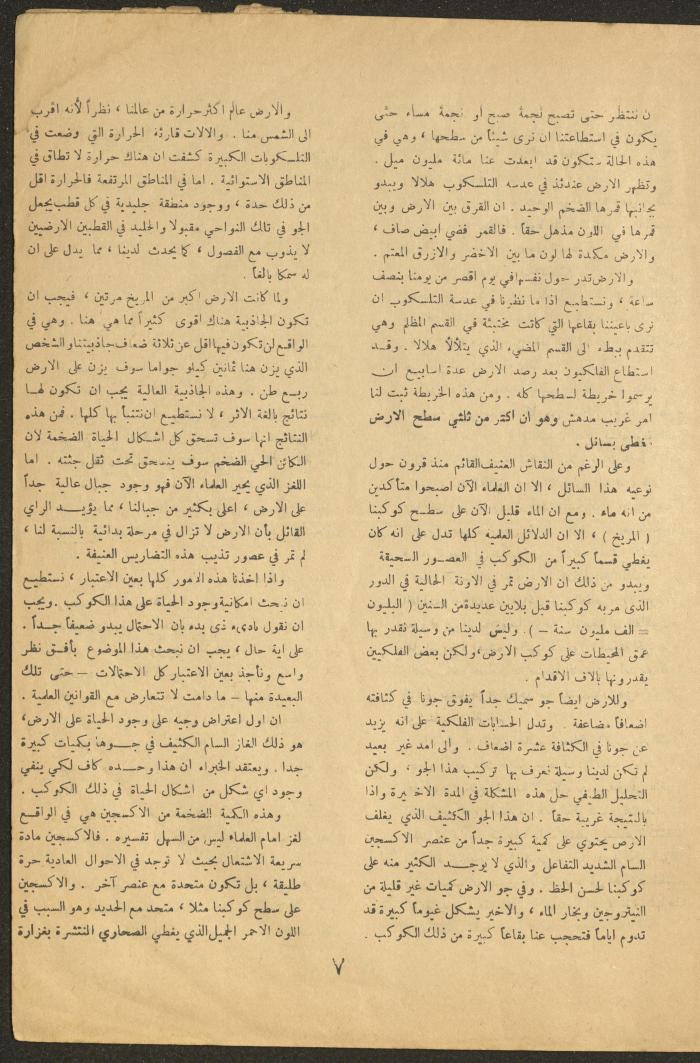 ن ننتظر حتى تصبح نجمة صبح او نجمة مساء حتى
يكون في استطاعتنا ان نرى شيئاً من سطحها ، وهي في
هذه الحالة ستكون قد ابعدت عنا مائة مليون ميل .
وتظهر الارض عندئذ في عدسه التلسكوب هلالا ويبدو
بجانبها قمرها الضخم الوحيد . ان الفرق بين الارض وبين
قمرها في اللون مذهل حقاً . فالقمر فضي ابيض صاف ،
والارض مكمدة لها لون ما بين الاخضر والازرق المعتم .
والارض تدر حول نفسها في يوم اقصر من يومنا بنصف
ساعة ، ونستطيع اذا ما نظرنا في عدسة التلسكوب ان
نرى باعيننا بقاعها التي كانت مختبئة في القسم المظلم وهي
تتقدم ببطء الى القسم المضيء الذي يتلألأ هلالا . وقد
استطاع الفلكيون بعد رصد الارض عدة اسابيع ان
يرسموا خريطة لسطحها كله . ومن هذه الخريطة ثبت لنا
امر غريب مدهش وهو ان اكثر من ثلثي سطح الارض
مغطى بسائل .
وعلى الرغم من النقاش العنيف القائم منذ قرون حول
نوعيه هذا السائل ، الا ان العلماء الآن اصبحوا متأكدين
من انه ماء . ومع ان الماء قليل الآن على سطح كوكبنا
( المريخ ) ، الا ان الدلائل العلمية كلها تدل على انه كان
يغطي قسماً كبيراً من الكوكب في العصور السحيقة
ويبدو من ذلك ان الارض تمر في الاونة الحالية في الدور
الذي مر به كوكبنا قبل بلايين عديدة من السنين ( البليون
= الف مليون سنة - ) وليس لدينا من وسيلة نقدر بها
عمق المحيطات على كوكب الارض ، ولكن بعض الفلكيين
يقدرونها بالاف الاقدام .
وللارض ايضاً جو سميك جداً يفوق جونا في كثافته
اضعافاً مضاعفة . وتدل الحسابات الفلكية على انه يزيد
عن جونا في الكثافة عشرة اضعاف . والى امد غير بعيد
لم تكن لدينا وسيلة نعرف بها تركيب هذا الجو ، ولكن
التحليل الطيفي حل هذه المشكلة في المدة الاخيرة واذا
بالنتيجة غريبة حقاً . ان هذا الجو الكثيف الذي يغلف
الارض يحتوي على كمية كبيرة جداً من عنصر الاكسجين
السام الشديد التفاعل والذي لا يوجد الكثير منه على
كوكبنا لحسن الحظ . وفي جو الارض كميات غير قليلة من
النيتروجين وبخار الماء ، والاخير يشكل غيوماً كبيرة قد
تدوم اياماً فتحجب عنا بقاعاً كبيرة من ذلك الكوكب .
والارض عالم اكثر حرارة من عالمنا ، نظراً لأنه اقرب
الى الشمس منا . والالات قارئة الحرارة التي وضعت في
التلسكوبات الكبيرة كشفت ان هناك حرارة لا تطاق في
المناطق الاستوائية . اما في المناطق المرتفعة فالحرارة اقل
من ذلك حدة ، ووجود منطقة جليدية في كل قطب يجعل
الجو في تلك النواحي مقبولا والجليد في القطبين الارضيين
لا يذوب مع الفصول ، كما يحدث لدينا ، مما يدل على ان
له سمكا بالغاً .
ولما كانت الارض اكبر من المريخ مرتين ، فيجب ان
تكون الجاذبية هناك اقوى كثيراً مما هي هنا . وهي في
الواقع لن تكون فيها اقل عن ثلاثة ضعاف جاذبيتنا والشخص
الذي يزن هنا ثمانين كيلو جواما سوف يزن على الارض
ربع طن . وهذه الجاذبية العالية يجب ان تكون لها
نتائج بالغة الاثر ، لا نستطيع ان نتنبأ بها كلها . فمن هذه
النتائج انها سوف تسحق كل اشكال الحياة الضخمة لان
الكائن الحي الضخم سوف ينسحق تحت ثقل جثته . اما
اللغز الذي يحير العلماء الآن فهو وجود جبال عالية جداً
على الارض ، اعلى بكثير من جبالنا ، مما يؤيد الراي
القائل بأن الارض لا تزال في مرحلة بدائية بالنسبة لنا ،
لم تمر في عصور تذيب هذه التضاريس العنيفة .
واذا اخذنا هذه الامور كلها بعين الاعتبار ، نستطيع
ان نبحث امكانية وجود الحياة على هذا الكوكب . ويجب
ان نقول بادىء ذى بدء بان الاحتمال يبدو ضعيفاً جداً .
على اية حال ، يجب ان نبحث هذا الموضوع بأفق نظر
واسع ونأخذ بعين الاعتبار كل الاحتمالات - حتى تلك
البعيدة منها - ما دامت لا تتعارض مع القوانين العلمية .
ان اول اعتراض وجيه على وجود الحياة على الارض ،
هو ذلك الغاز السام الكثيف في جوها بكميات كبيرة
جدا . ويعتقد الخبراء ان هذا وحده كاف لكي ينفي
وجود اي شكل من اشكال الحياة في ذلك الكوكب .
وهذه الكمية الضخمة من الاكسجين هي في الواقع
لغز امام العلماء ليس من السهل تفسيره . فالاكسجين مادة
سريعة الاشتعال بحيث لا توجد في الاحوال العادية حرة
طليقة ، بل تكون متحدة مع عنصر آخر . والاكسجين
على سطح كوكبنا مثلا ، متحد مع الحديد وهو السبب في
اللون الاحمر الجميل الذي يغطي الصحاري المنتشرة بغزارة
٧